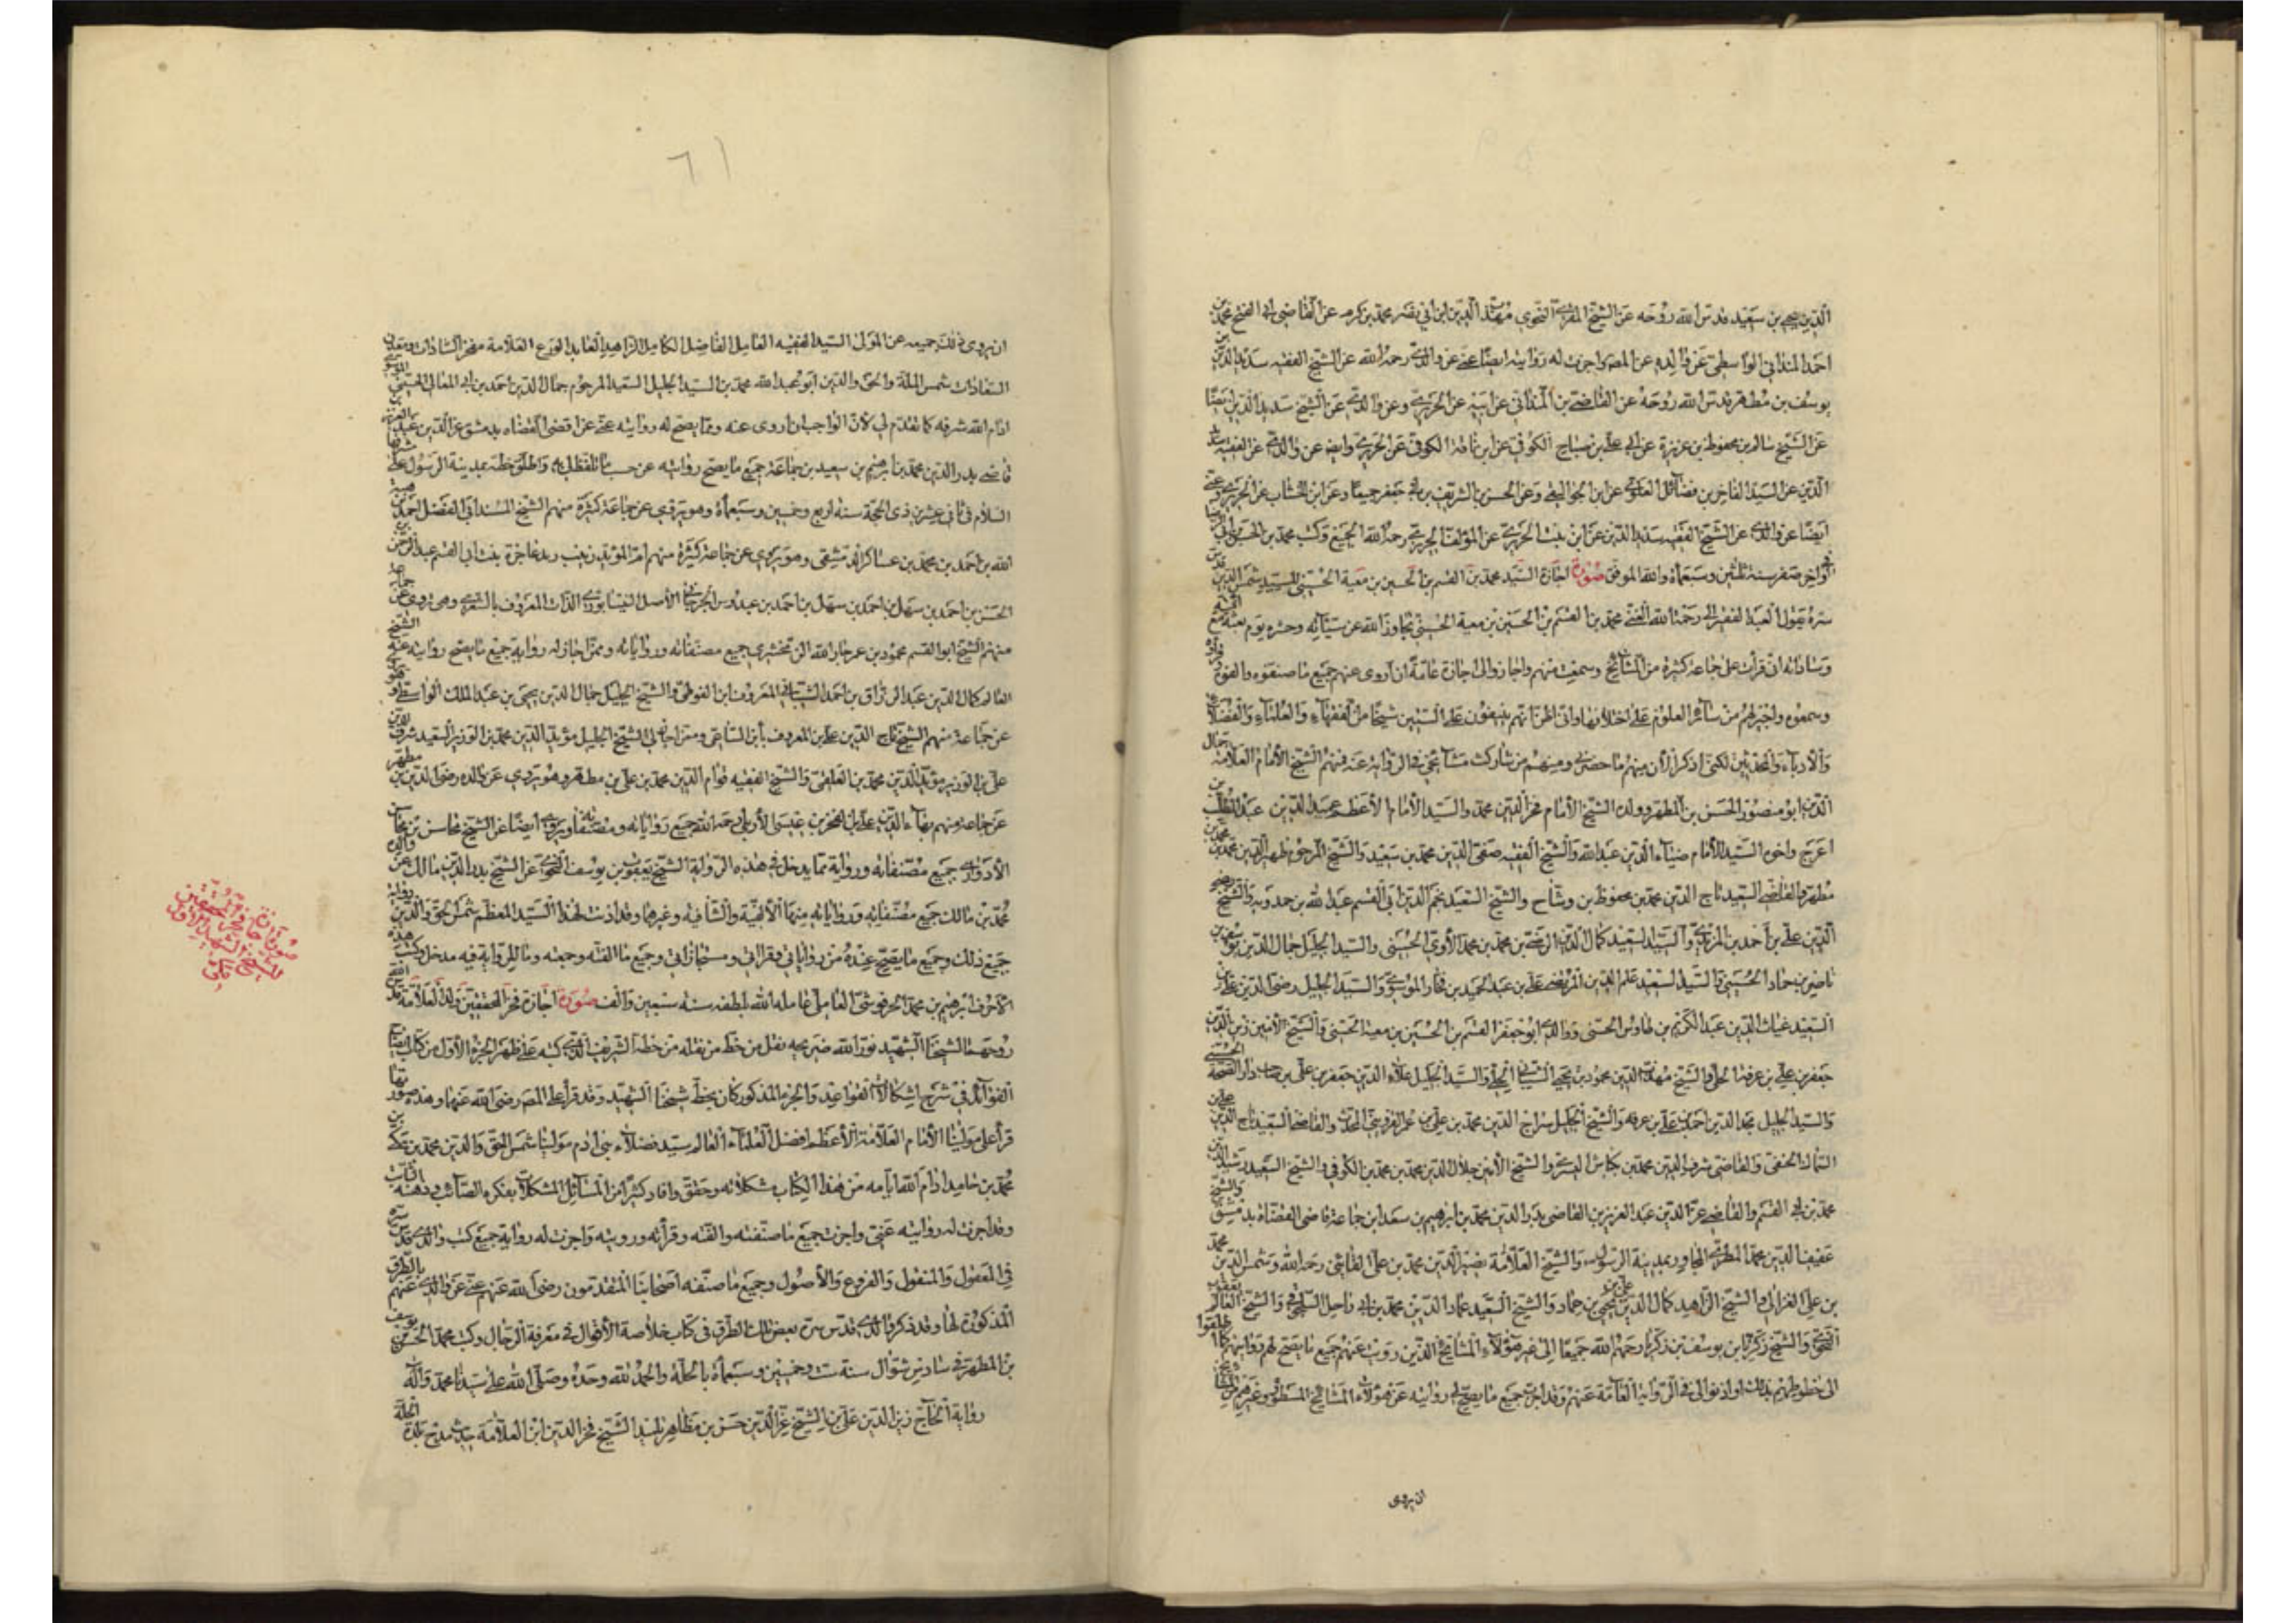 الدين يحيى بن سعيد قدس الله روحه عن الشيخ المقرئ النحوي مهذب الدين ابن ابي نصر محمد بن كرم عن القاضي ابي الفتح محمد بن
احمد المنداني الواسطي عن والده عن المصر واجزت له روايته ايضا عني عن والدي رحمه الله عن الشيخ الفقيه سديد الدين
يوسف بن مطهر قدس الله روحه عن القاضي بن المنداني عن ابيه عن الحريري وعن والدي عن الشيخ سديد الدين ايضا
عن الشيخ سالم بن محفوظ بن عزيزة عن علي بن صباح الكوفي عن ابن ناقة الكوفي عن الحريري وايض عن والدي عن الفقيه
الدين عن السيد الفاخر بن فضائل العلوي عن ابن الجواليقي وعن الحسن بن الشريف بن ابي جعفر جميعا وعن ابن الخشاب عن الحريري وعني
ايضا عن والدي عن الشيخ الفقيه سديد الدين عن ابن بنت الحريري عن المؤلف الحريري رحمه الله الجميع وكتب محمد بن الحسن
في اواخر صفر سنة ثلثين وسبعمائة والله الموفق صورة اجازة السيد محمد بن القسم بن الحسين بن معية الحسيني للسيد شمس الدين قدس
سره يقول العبد الفقير الى رحمة الله الغني محمد بن القسم بن الحسين بن معية الحسني تجاوز الله عن سيئاته وحشره يوم بعثه مع ائمته
وساداته اني قرأت على جماعة كثيرة من المشايخ وسمعت منهم واجازوا لي اجازة عامة ان اروي عنهم جميع ما صنفوه والفوه
وسمعوه واخبرهم من سائر العلوم على اختلافها واني اظن انهم ينيفون على الستين شيخا من الفقهاء والعلماء والفضلاء
والادباء والمحدثين لكني اذكر الان منهم ما حضرني ومنهم من شاركت مشايخي في الرواية عنه فمنهم الشيخ الامام العلامة جمال
الدين ابو منصور الحسن بن المطهر وولده الشيخ الامام فخر الدين محمد والسيد الامام الاعظم عميد الدين عبد المطلب بن
اعرج واخوه السيد الامام ضياء الدين عبد الله والشيخ الفقيه صفي الدين محمد بن سعيد والشيخ المرحوم ظهير الدين محمد بن محمد بن
مطهر والقاضي السعيد تاج الدين محمد بن محفوظ بن وشاح والشيخ السعيد نجم الدين ابي القسم عبد الله بن حمدويه والشيخ رضي
الدين علي بن احمد بن المزيدي والسيد السعيد كمال الدين الرضي بن محمد بن محمد الآوي الحسيني والسيد الجليل جمال الدين يوسف بن
ناصر بن حماد الحسيني والسيد السعيد علم الدين المرتضى علي بن عبد الحميد بن فخار الموسوي والسيد الجليل رضي الدين علي بن
السعيد غياث الدين عبد الكريم بن طاوس الحسني ووالدي ابو جعفر القسم بن الحسين بن معية الحسني والشيخ الامين زين الدين
جعفر بن علي بن عرفة الحلي والشيخ مهذب الدين محمود بن يحيى الشيباني الحلي والسيد الجليل علاء الدين جعفر بن علي بن صاحب دار الصخر الحسني
والسيد الجليل مجد الدين احمد بن علي بن عرفة والشيخ الجليل سراج الدين محمد بن علي بن عمر القزويني المحدث والقاضي السعيد تاج الدين علي بن
السماك الحنفي والقاضي شرف الدين محمد بن بكتاش والشيخ الامين جلال الدين محمد بن محمد بن الكوفي والشيخ السعيد رشيد الدين
محمد بن ابي القسم والقاضي عز الدين عبد العزيز بن القاضي بدر الدين محمد بن ابراهيم بن سعد ابن جماعة قاضي القضاة بدمشق والشيخ
عفيف الدين محمد المطري المجاور بمدينة الرسول والشيخ العلامة نصير الدين محمد بن علي القاشي رحمه الله وشمس الدين محمد
بن علي الغزالي والشيخ الزاهد كمال الدين علي بن يحيى بن حماد والشيخ السعيد عماد الدين محمد بن والشيخ العالم يعقوب
النحوي والشيخ زكريا بن يوسف بن زكريا رحمهم الله جميعا الى غير هؤلاء المشايخ الذين رويت عنهم جميع ما يصح لهم روايته كما اطلقوا
الي خطوطهم بذلك او اذنوا لي في الرواية العامة عنهم وقد اجزت جميع ما يصح لي روايته عن هؤلاء المشايخ المسطورين وغيرهم من المشايخ
ان يروى
ان يروى ذلك جميعه عن المولى السيد الفقيه العامل الفاضل الكامل الزاهد العابد الورع العلامة مفخر السادات ومعدن
السعادات شمس الملة والحق والدين ابو عبد الله محمد بن السيد الجليل السعيد المرحوم جمال الدين احمد بن ابي المعالي الحسيني الموسوي
ادام الله شرفه كما تقدم لي لان الواجب ان اروى عنه ومما يصح له روايته عني عن اقضى القضاه بدمشق عز الدين عبد العزيز بن
قاضي بدر الدين محمد بن ابرهيم بن سعيد بن جماعة جميع ما يصح روايته عن حسب ما تلفظ لي به واطلق خطه بمدينة الرسول على مشرفها
السلام في ثاني عشرين ذى الحجة سنه اربع وخمسين وسبعمائة وهو يروي عن جماعة كثيرة منهم الشيخ المسند ابي الفضل احمد بن هبة
الله بن احمد بن محمد بن عساكر الدمشقي وهو يروي عن جماعة كثيرة منهم ام المؤيد زينب بنت ابي القسم عبد الرحمن بن
الحسن بن احمد بن سهل بن احمد بن سهل بن احمد بن عبدوس الجرجاني الاصل النيسابوري الدار المعروف بالشعري وهي تروي عن جماعة
منهم الشيخ ابو القسم محمود بن عمر جار الله الزمخشري جميع مصنفاته ورواياته وممن اجاز له رواية جميع ما يصح روايته عنه الشيخ
العالم كمال الدين عبد الرزاق بن احمد الشيباني المعروف بابن الفوطي والشيخ الجليل جمال الدين يحيى بن عبد الملك الواسطي وهو يروي
عن جماعة منهم الشيخ تاج الدين علي بن المعروف بابن الساعي وممن اجاز لي الشيخ الجليل مؤيد الدين محمد بن الوزير السعيد شرف الدين
علي بن الوزير مؤيد الدين محمد بن العلقمي والشيخ الفقيه قوام الدين محمد بن علي بن مطهر وهو يروي عن والده رضي الدين بن مطهر
عن جماعة منهم بهاء الدين علي بن الفخر بن عيسى الاربلي رحمه الله جميع رواياته ومصنفاته ويروي ايضا عن الشيخ محاسن
جميع مصنفاته ورواية مما يدخل في هذه الرواية الشيخ يعقوب بن يوسف النحوي عن الشيخ بدر الدين مالك عن والده
محمد بن مالك جميع مصنفاته ورواياته منها الالفية والشافيه وغيرهما وقد اذنت لهذا السيد المعظم شمس الحق والدين رواية
جميع ذلك وجميع ما يصح عنده من رواياتي وقراءاتي ومستجازاتي وجميع ما الفته وجمعته وما للرواية فيه مدخل وكتب هذه
الاحرف ابرهيم بن محمد الحرفوشي العاملي عامله الله بلطفه سنه سبعين والف صورة اجازة فخر المحققين ولد العلامة قدس الله
روحهما لشيخنا الشهيد نور الله ضريحه نقل من خط من نقله من خطه الشريف الذي كتبه على ظهر الجزء الاول من كتاب ايضاح
الفوائد في شرح اشكالات القواعد والجزء المذكور كان بخط شيخنا الشهيد وقد قرأ على المصر رضي الله عنهما وهذه صورتها
قرأ علي مولينا الامام العلامة الاعظم افضل العلماء العالم سيد فضلاء بني ادم مولينا شمس الحق والدين محمد بن مكي بن
محمد بن حامد ادام الله ايامه من هذا الكتاب مشكلاته وحقق وافاد كثيرا من المسائل المشكلات بفكره الصائب وذهنه الثاقب
وقد اجزت له روايته عني واجزت جميع ما صنفته والفته وقرأته ورويته واجزت له رواية جميع كتب والدي قدس سره
في المعقول والمنقول والفروع والاصول وجميع ما صنفه اصحابنا المتقدمون رضي الله عنهم عني عن والدي عنهم بالطرق
المذكورة لها وقد ذكر والدي قدس سره بعض تلك الطرق في كتاب خلاصة الاقوال في معرفة الرجال وكتب محمد بن الحسن بن يوسف
بن المطهر في سادس شوال سنة ست وخمسين وسبعمائة بالحلة والحمد لله وحده وصلى الله على سيدنا محمد وآله
رواية الحاج زين الدين علي بن الشيخ عز الدين حسن بن مظاهر تلميذ الشيخ فخر الدين ابن العلامة حديث مدح بلدة الحلة
صورة اجازة فخر المحققين
للشيخ الشهيد الاول
مكي
٦١